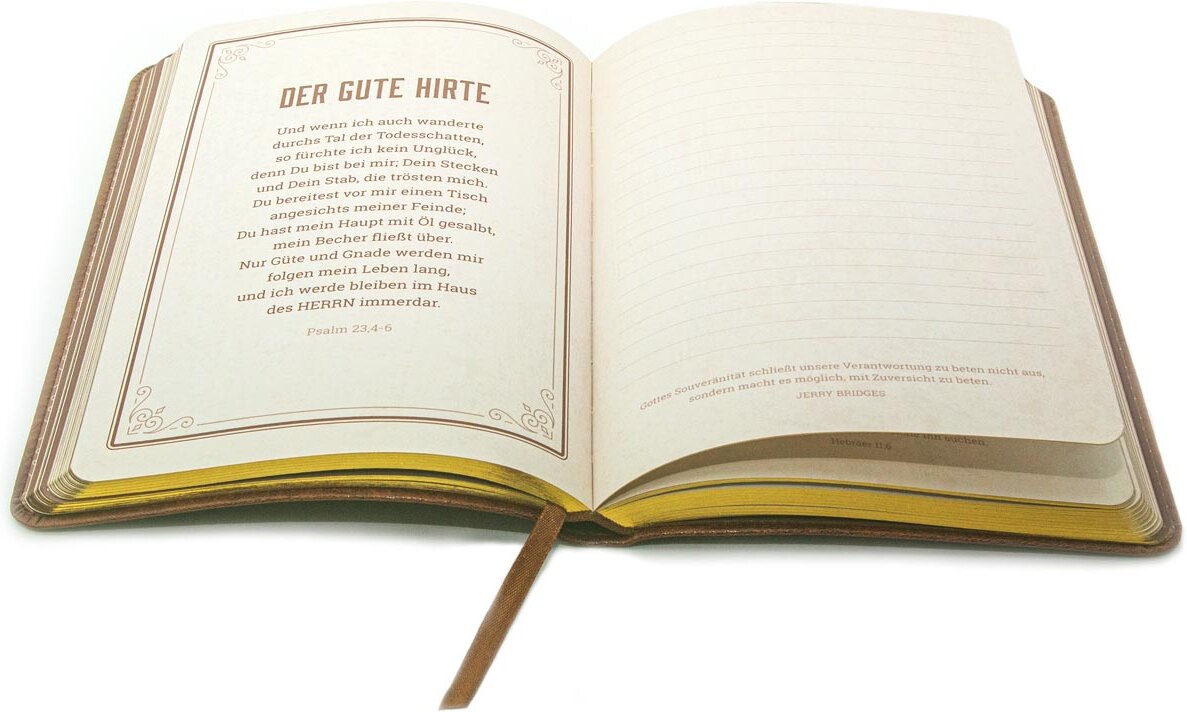 DER GUTE HIRTE
Und wenn ich auch wanderte
durchs Tal der Todesschatten,
so fürchte ich kein Unglück,
denn Du bist bei mir; Dein Stecken
und Dein Stab, die trösten mich.
Du bereitest vor mir einen Tisch
angesichts meiner Feinde;
Du hast mein Haupt mit Öl gesalbt,
mein Becher fließt über.
Nur Güte und Gnade werden mir
folgen mein Leben lang,
und ich werde bleiben im Haus
des HERRN immerdar.
Psalm 23,4-6
Gottes Souveränität schließt unsere Verantwortung zu beten nicht aus,
sondern macht es möglich, mit Zuversicht zu beten.
JERRY BRIDGES
Ihn suchen.
Hebräer 11:6